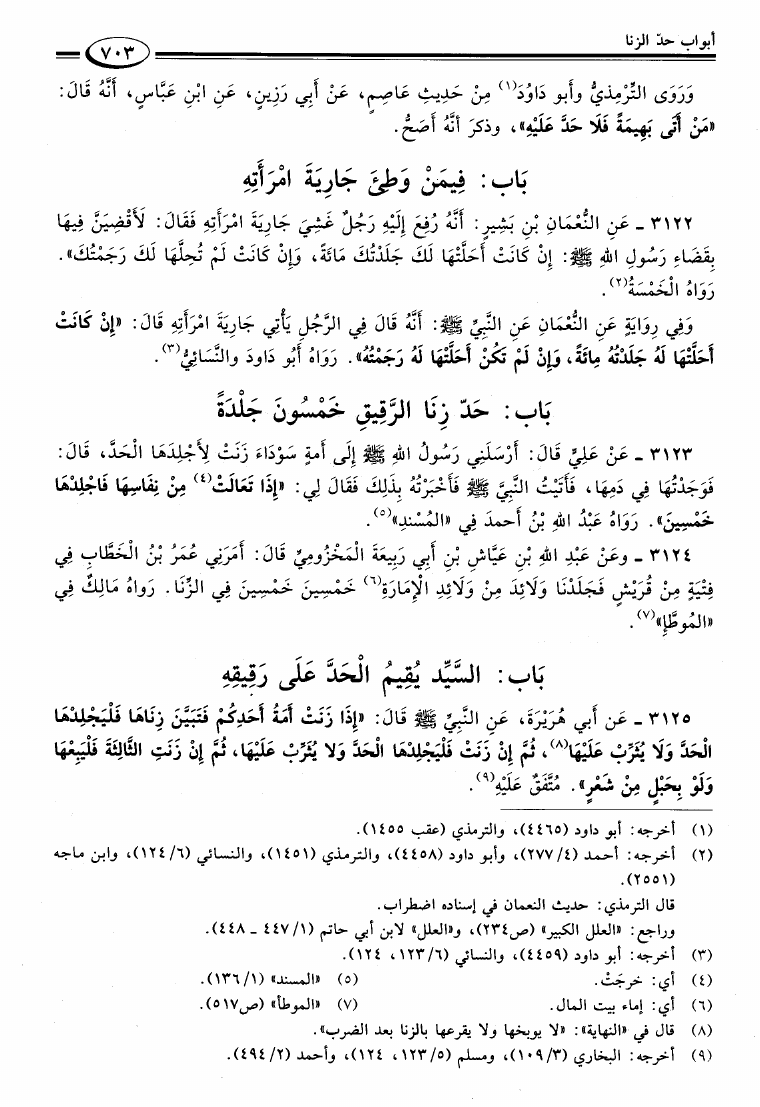 أبواب حدّ الزنا
٧٠٣
وَرَوَى التِّرْمذِيُّ وأَبو دَاوُدَ(١) مِنْ حَدِيثِ عَاصِمٍ، عَنْ أَبِي رَزِينٍ، عَنِ ابْنِ عَبَّاسٍ، أَنَّهُ قَالَ:
«مَنْ أَتَى بَهِيمَةً فَلَا حَدَّ عَلَيْهِ»، وذكرَ أنَّهُ أَصَحُّ.
بَاب: فِيمَنْ وَطِئَ جَارِيَةَ امْرَأَتِهِ
٣١٢٢ ـ عَنِ النُّعْمَانِ بْنِ بَشِيرٍ: أَنَّهُ رُفِعَ إِلَيْهِ رَجُلٌ غَشِيَ جَارِيَةَ امْرَأَتِهِ فَقَالَ: لَأَقْضِيَنَّ فِيهَا
بِقَضَاءِ رَسُولِ اللهِ ﷺ: إِنْ كَانَتْ أَحَلَّتْهَا لَكَ جَلَدْتُكَ مَائَةً، وَإِنْ كَانَتْ لَمْ تُحِلَّهَا لَكَ رَجَمْتُكَ».
رَوَاهُ الْخَمْسَةُ(٢).
وَفِي رِوَايَةٍ عَنِ النُّعْمَانِ عَنِ النَّبِيِّ ﷺ: أَنَّهُ قَالَ فِي الرَّجُلِ يَأْتِي جَارِيَةَ امْرَأَتِهِ قَالَ: «إِنْ كَانَتْ
أَحَلَّتْهَا لَهُ جَلَدْتُهُ مِائَةً، وَإِنْ لَمْ تَكُنْ أَحَلَّتْهَا لَهُ رَجَمْتُهُ». رَوَاهُ أَبُو دَاودَ والنَّسَائِيُّ(٣).
بَاب: حَدّ زِنَا الرَّقِيقِ خَمْسُونَ جَلْدَةً
٣١٢٣ ـ عَنْ عَلِيٍّ قَالَ: أَرْسَلَنِي رَسُولُ اللهِ ﷺ إِلَى أَمةٍ سَوْدَاءَ زَنَتْ لِأَجْلِدَهَا الْحَدَّ، قَالَ:
فَوَجَدْتُهَا فِي دَمِهَا، فَأَتَيْتُ النَّبِيَّ ﷺ فَأَخْبَرْتُهُ بِذَلِكَ فَقَالَ لِي: «إِذَا تَعَالَتْ(٤) مِنْ نِفَاسِهَا فَاجْلِدْهَا
خَمْسِينَ». رَوَاهُ عَبْدُ اللهِ بْنُ أَحمدَ فِي «المُسْندِ»(٥).
٣١٢٤ ـ وعَنْ عَبْدِ اللهِ بْنِ عَيَّاشِ بْنِ أَبِي رَبِيعَةَ الْمَخْزُومِيِّ قَالَ: أَمَرَنِي عُمَرُ بْنُ الْخَطَّابِ فِي
فِتْيَةٍ مِنْ قُرَيْشٍ فَجَلَدْنَا وَلَائِدَ مِنْ وَلَائِدِ الْإِمَارَةِ(٦) خَمْسِينَ خَمْسِينَ فِي الزِّنَا. رَواهُ مَالِكٌ فِي
«المُوطَّإِ»(٧).
بَاب: السَّيِّد يُقِيمُ الْحَدَّ عَلَى رَقِيقِهِ
٣١٢٥ ـ عَن أَبِي هُرَيْرَةَ، عَنِ النَّبِيِّ ﷺ قَالَ: «إِذَا زَنَتْ أَمَةُ أَحَدِكُمْ فَتَبَيَّنَ زِنَاهَا فَلْيَجْلِدْهَا
الْحَدَّ وَلَا يُثَرِّبْ عَلَيْهَا(٨)، ثُمَّ إِنْ زَنَتْ فَلْيَجْلِدْهَا الْحَدَّ وَلا يُثَرِّبْ عَلَيْهَا، ثُمَّ إِنْ زَنَتِ الثَّالِثَةَ فَلْيَبِعْهَا
وَلَوْ بِحَبْلٍ مِنْ شَعْرٍ». مُتَّفَقٌ عَلَيْهِ(٩).
(١) أخرجه: أبو داود (٤٤٦٥)، والترمذي (عقب ١٤٥٥).
(٢) أخرجه: أحمد (٤/ ٢٧٧)، وأبو داود (٤٤٥٨)، والترمذي (١٤٥١)، والنسائي (٦/ ١٢٤)، وابن ماجه
(٢٥٥١).
قال الترمذي: حديث النعمان في إسناده اضطراب.
وراجع: «العلل الكبير» (ص٢٣٤)، و«العلل» لابن أبي حاتم (١/ ٤٤٧ ـ ٤٤٨).
(٣) أخرجه: أبو داود (٤٤٥٩)، والنسائي (٦/ ١٢٣، ١٢٤).
(٤) أي: خرجَتْ. (٥) «المسند» (١/ ١٣٦).
(٦) أي: إماء بيت المال. (٧) «الموطأ» (ص٥١٧).
(٨) قال في «النهاية»: «لا يوبخها ولا يقرعها بالزنا بعد الضرب».
(٩) أخرجه: البخاري (٣/ ١٠٩)، ومسلم (٥/ ١٢٣، ١٢٤)، وأحمد (٢/ ٤٩٤).